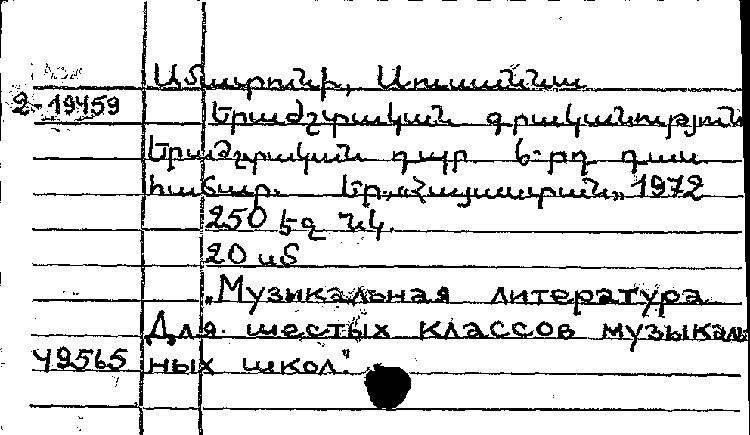 Ամատունի, Սուսաննա
2-19459
Երաժշտական գրականություն
Երաժշտական դպր. 6-րդ դաս.
համար. Եր., «Հայաստան» 1972
250 էջ նկ.
20 սմ
„Музыкальная литература
Для шестых классов музыкаль
49565 ных школ".